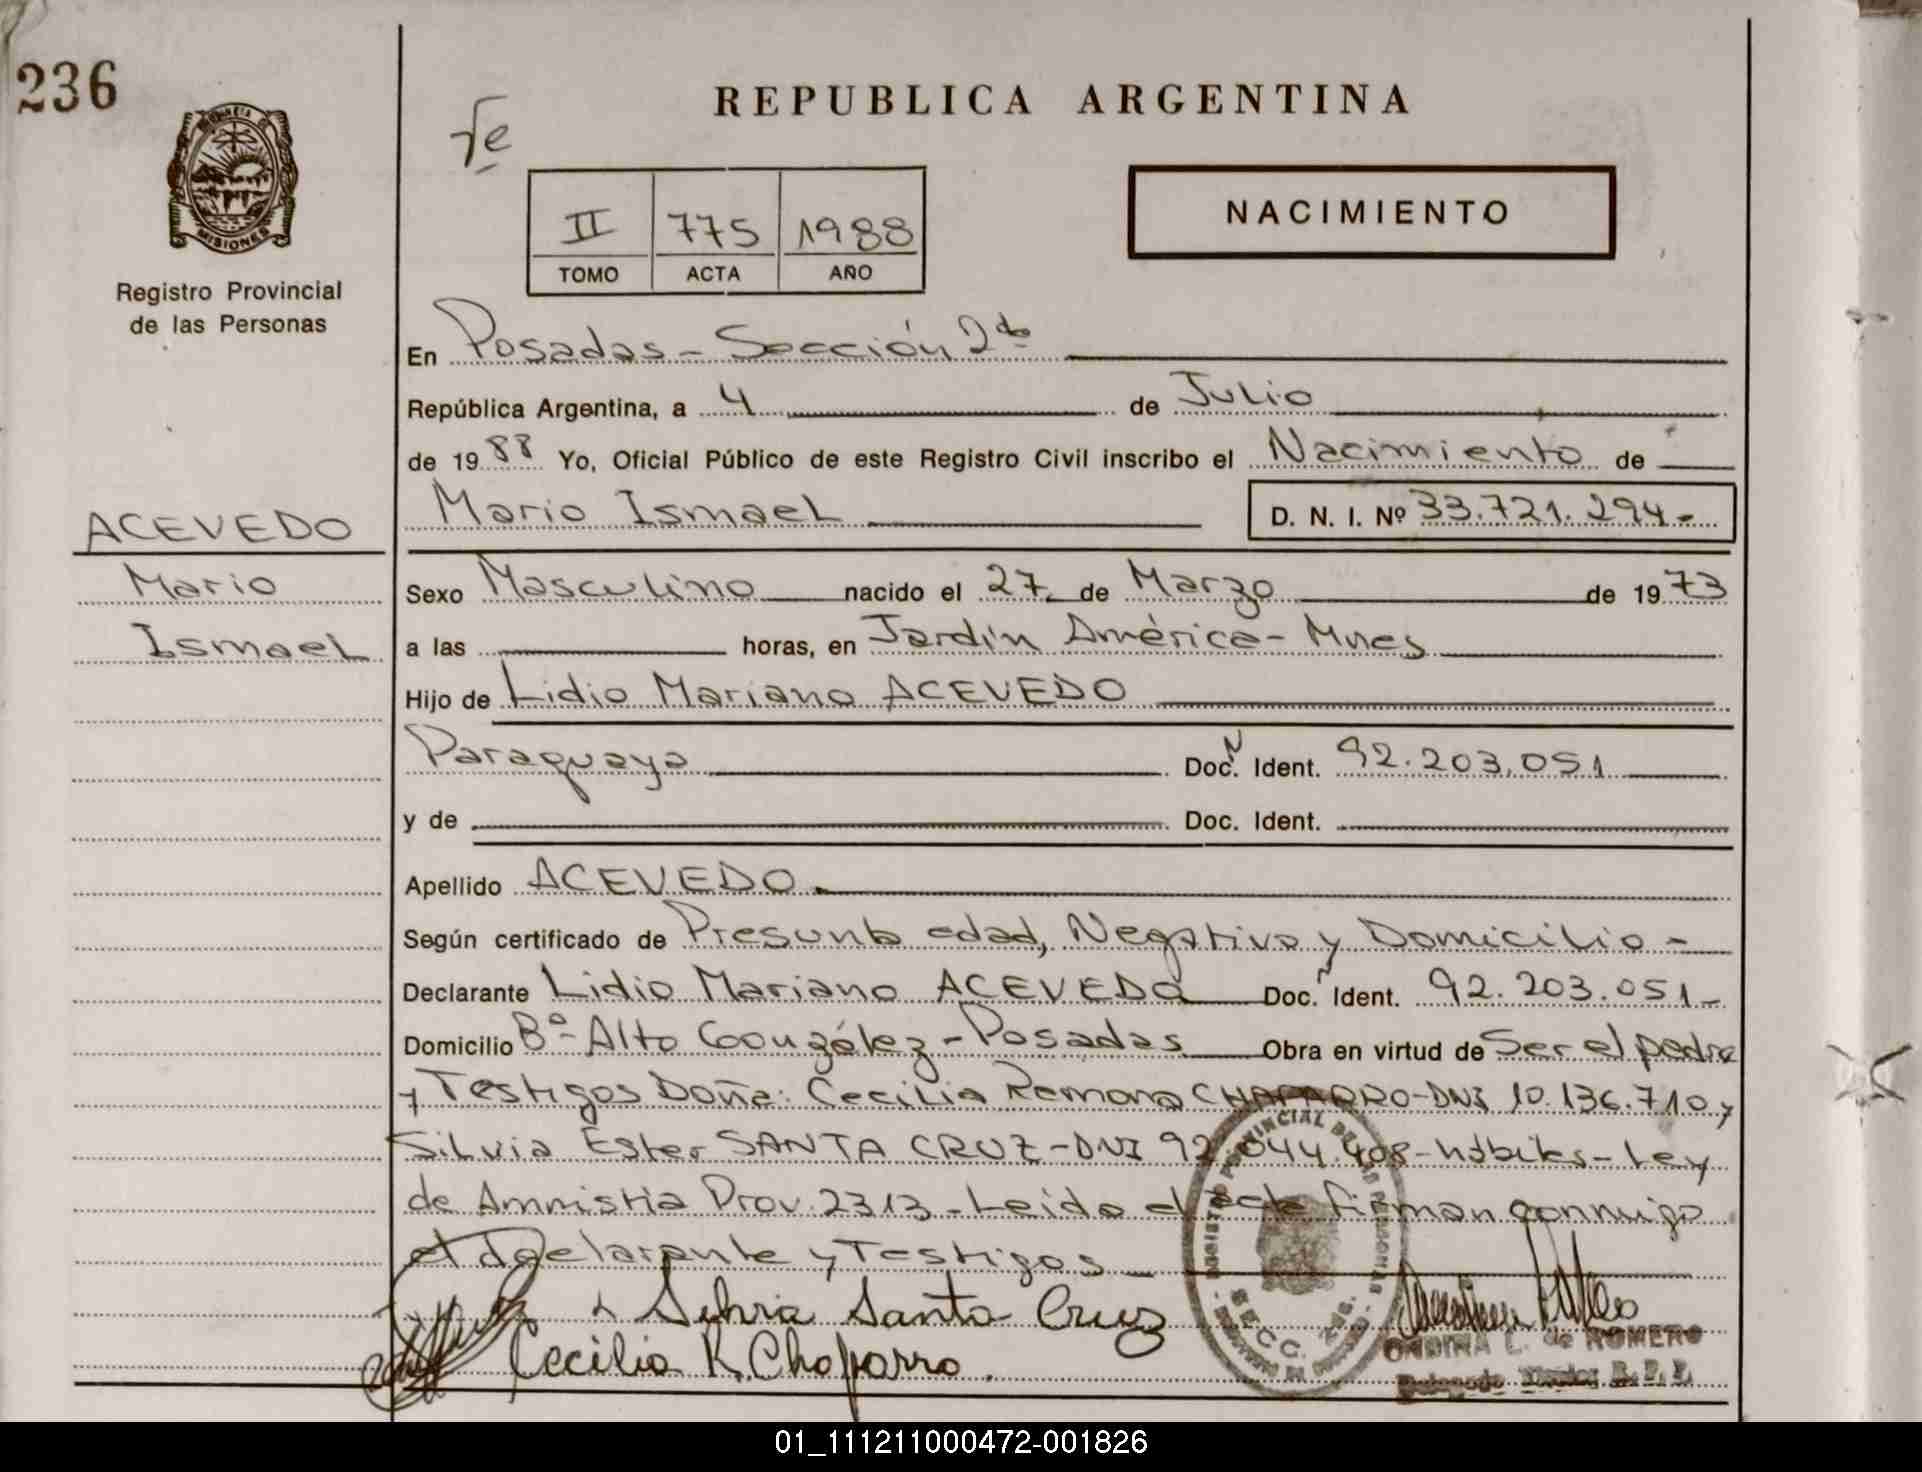 236
REPUBLICA ARGENTINA
MISIONES
Registro Provincial
de las Personas
II 775 1988
TOMO ACTA AÑO
NACIMIENTO
En Posadas - Sección 2da
República Argentina, a 4 de Julio
de 1988 Yo, Oficial Público de este Registro Civil inscribo el Nacimiento de
Mario Ismael D. N. I. Nº 33.721.294-
ACEVEDO
Mario
Ismael
Sexo Masculino nacido el 27 de Marzo de 1973
a las horas, en Jardín América - Mnes
Hijo de Lidio Mariano ACEVEDO
Paraguaya Doc. Ident. 92.203.051
y de Doc. Ident.
Apellido ACEVEDO
Según certificado de Presunta edad, Negativo y Domicilio -
Declarante Lidio Mariano ACEVEDO Doc. Ident. 92.203.051-
Domicilio Bº- Alto González - Posadas Obra en virtud de Ser el padre
y Testigos Doña: Cecilia Ramona CHAPARRO-DNI 10.136.710 y
Silvia Ester SANTA CRUZ-DNI 92.044.408-hábiles-Ley
de Amnistia Prov. 2313 - Leida el acta firman conmigo
el declarante y Testigos
Silvia Santa Cruz
Cecilia R. Chaparro
ONDINA L. de ROMERO
01_111211000472-001826